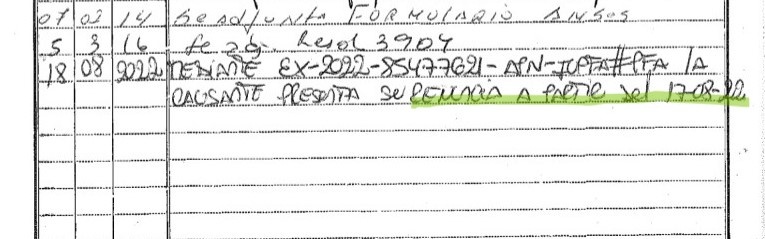 07 02 14 Se adjunta FORMULARIO ANSES
5 3 16 Resol 3904
18 08 2022 MEDIANTE EX-2022-85477621-APN-IOPFA#PFA LA
CAUSANTE PRESENTA SU RENUNCIA A PARTIR del 17-08-22